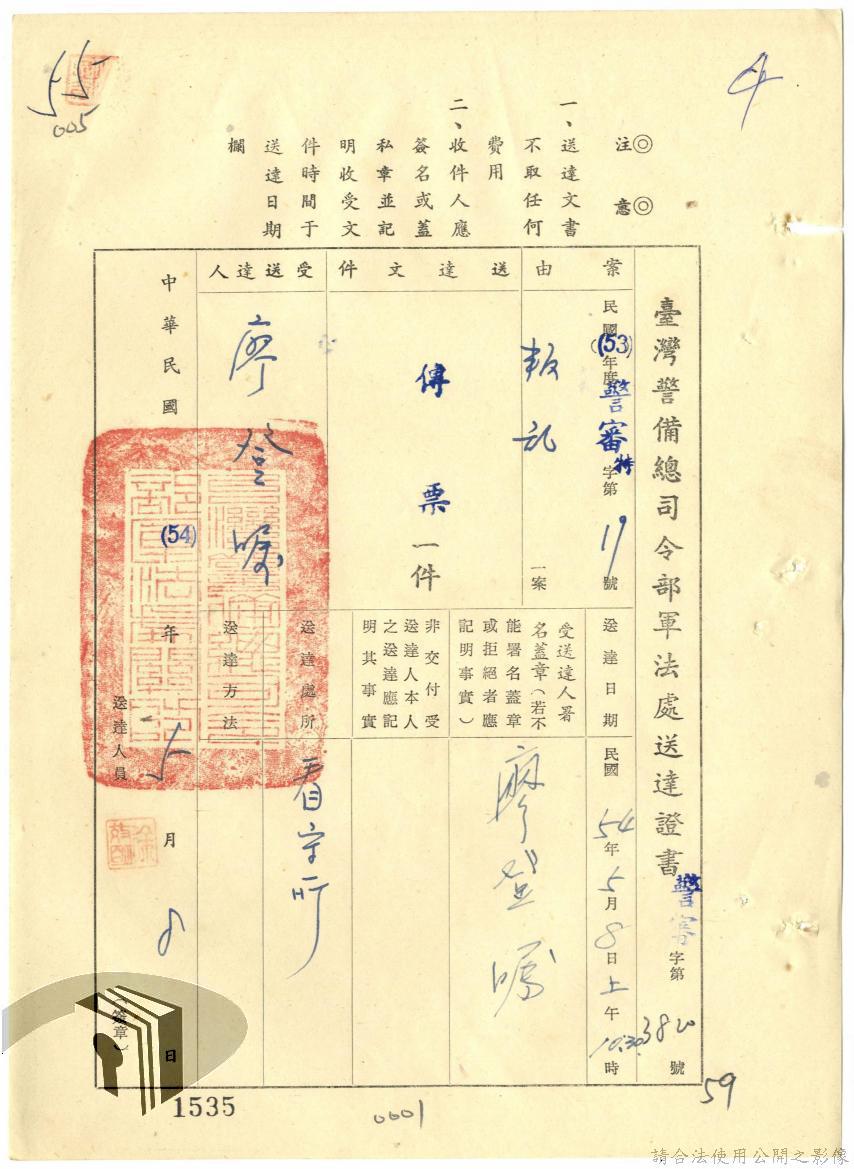 55
005
4
◎注意◎
一、送達文書
不取任何
費用
二、收件人應
簽名或蓋
私章並記
明收受文
件時間于
送達日期
欄
臺灣警備總司令部軍法處送達證書
警審字第3820號
案由
民國(53)年度警審特字第19號
叛乱一案
送達文件
傳票一件
受送達人
廖登囑
送達日期
民國54年5月8日上午10:30時
受送達人署
名蓋章(若不
能署名蓋章
或拒絕者應
記明事實)
廖登囑
非交付受
送達人本人
之送達應記
明其事實
送達處所
看守所
送達方法
中華民國(54)年5月8日
送達人員
(簽章)
1535
0001
59
請合法使用公開之影像